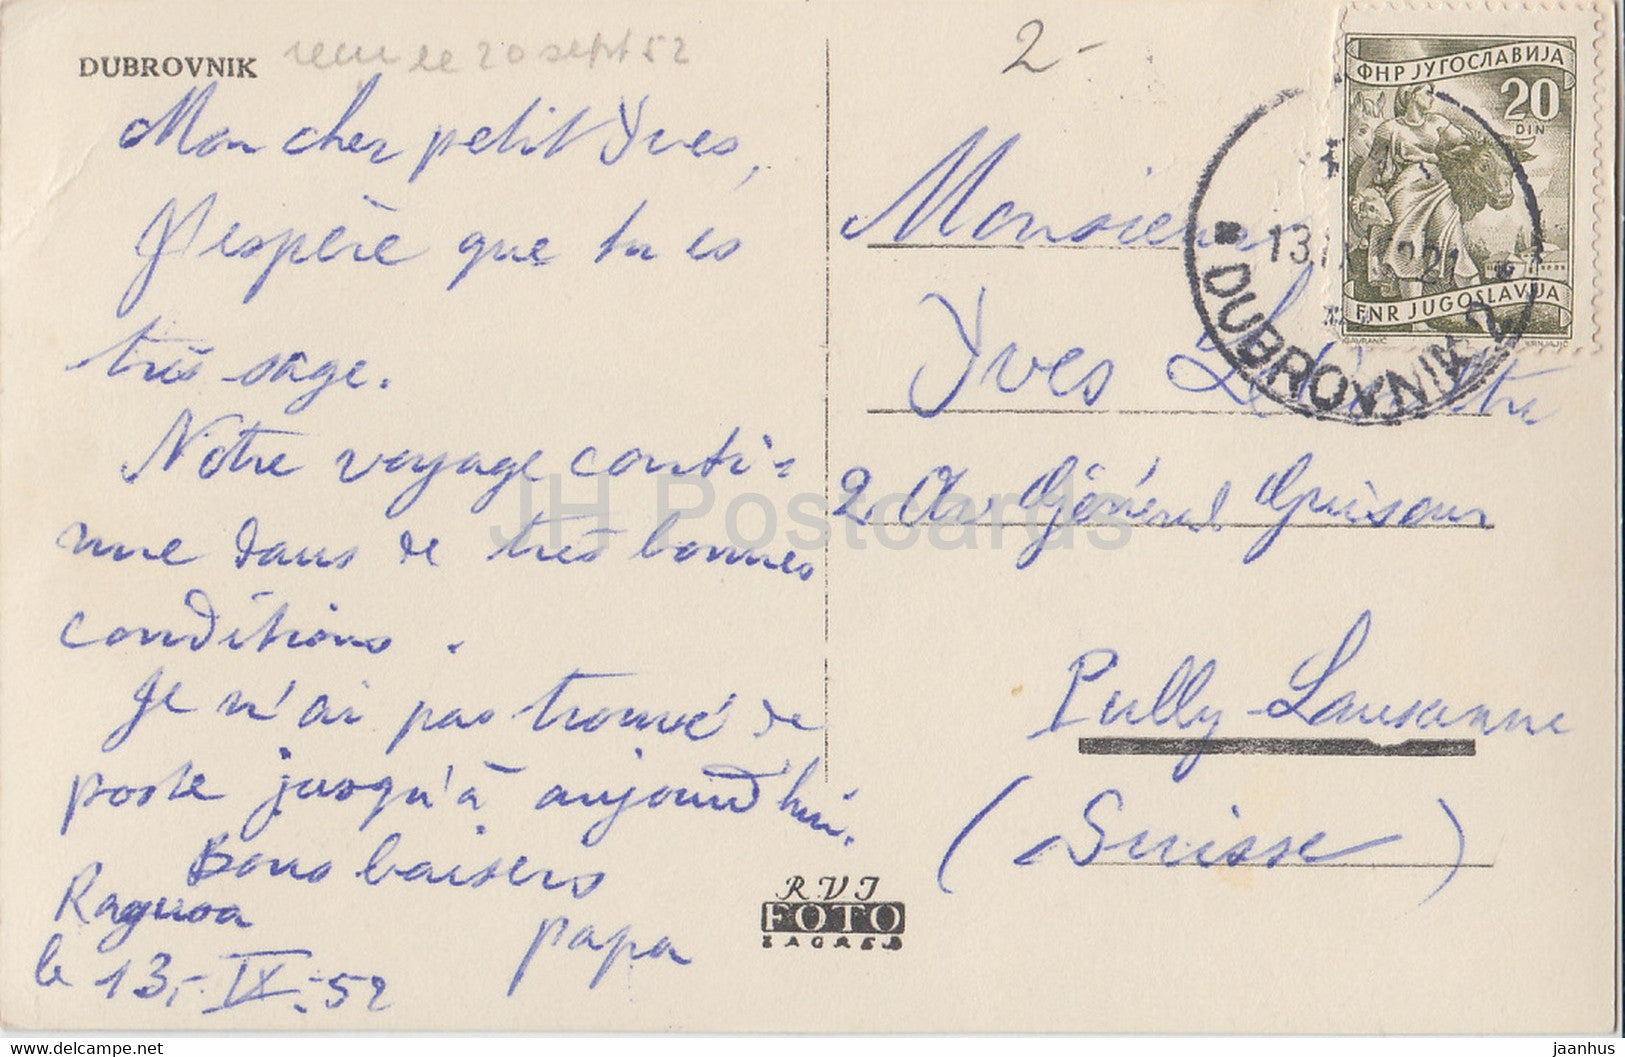 DUBROVNIK
20 sept 52
2-
Mon cher petit Yves,
J'espère que tu es
très sage.
Notre voyage conti-
nue dans de très bonnes
conditions.
Je n'ai pas trouvé de
poste jusqu'à aujourd'hui.
Bons baisers
papa
Ragusa
le 13.-IX.-52
Monsieur
Yves
2 Av Général Guisan
Pully-Lausanne
(Suisse)
ФНР ЈУГОСЛАВИЈА
20
DIN
FNR JUGOSLAVIJA
GAVRANIĆ KRNJAJIĆ
DUBROVNIK 2
RVI
FOTO
ZAGREB
JH Postcards
HipPostcard.com
jaanhus